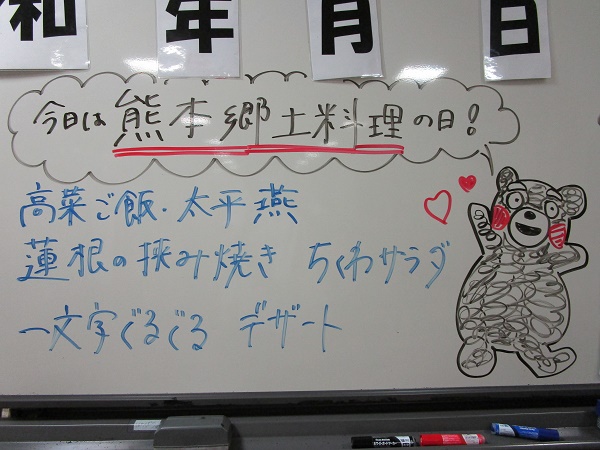 和 年 月 日
今日は熊本郷土料理の日!
高菜ご飯・太平燕
蓮根の挟み焼き ちくわサラダ
一文字ぐるぐる デザート